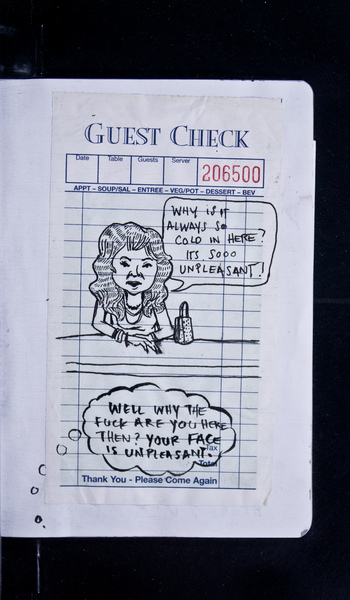 GUEST CHECK
Date Table Guests Server
206500
APPT – SOUP/SAL – ENTREE – VEG/POT – DESSERT – BEV
WHY IS IT
ALWAYS SO
COLD IN HERE?
ITS SOOO
UNPLEASANT!
WELL WHY THE
FUCK ARE YOU HERE
THEN? YOUR FACE
IS UNPLEASANT.
Tax
Total
Thank You - Please Come Again